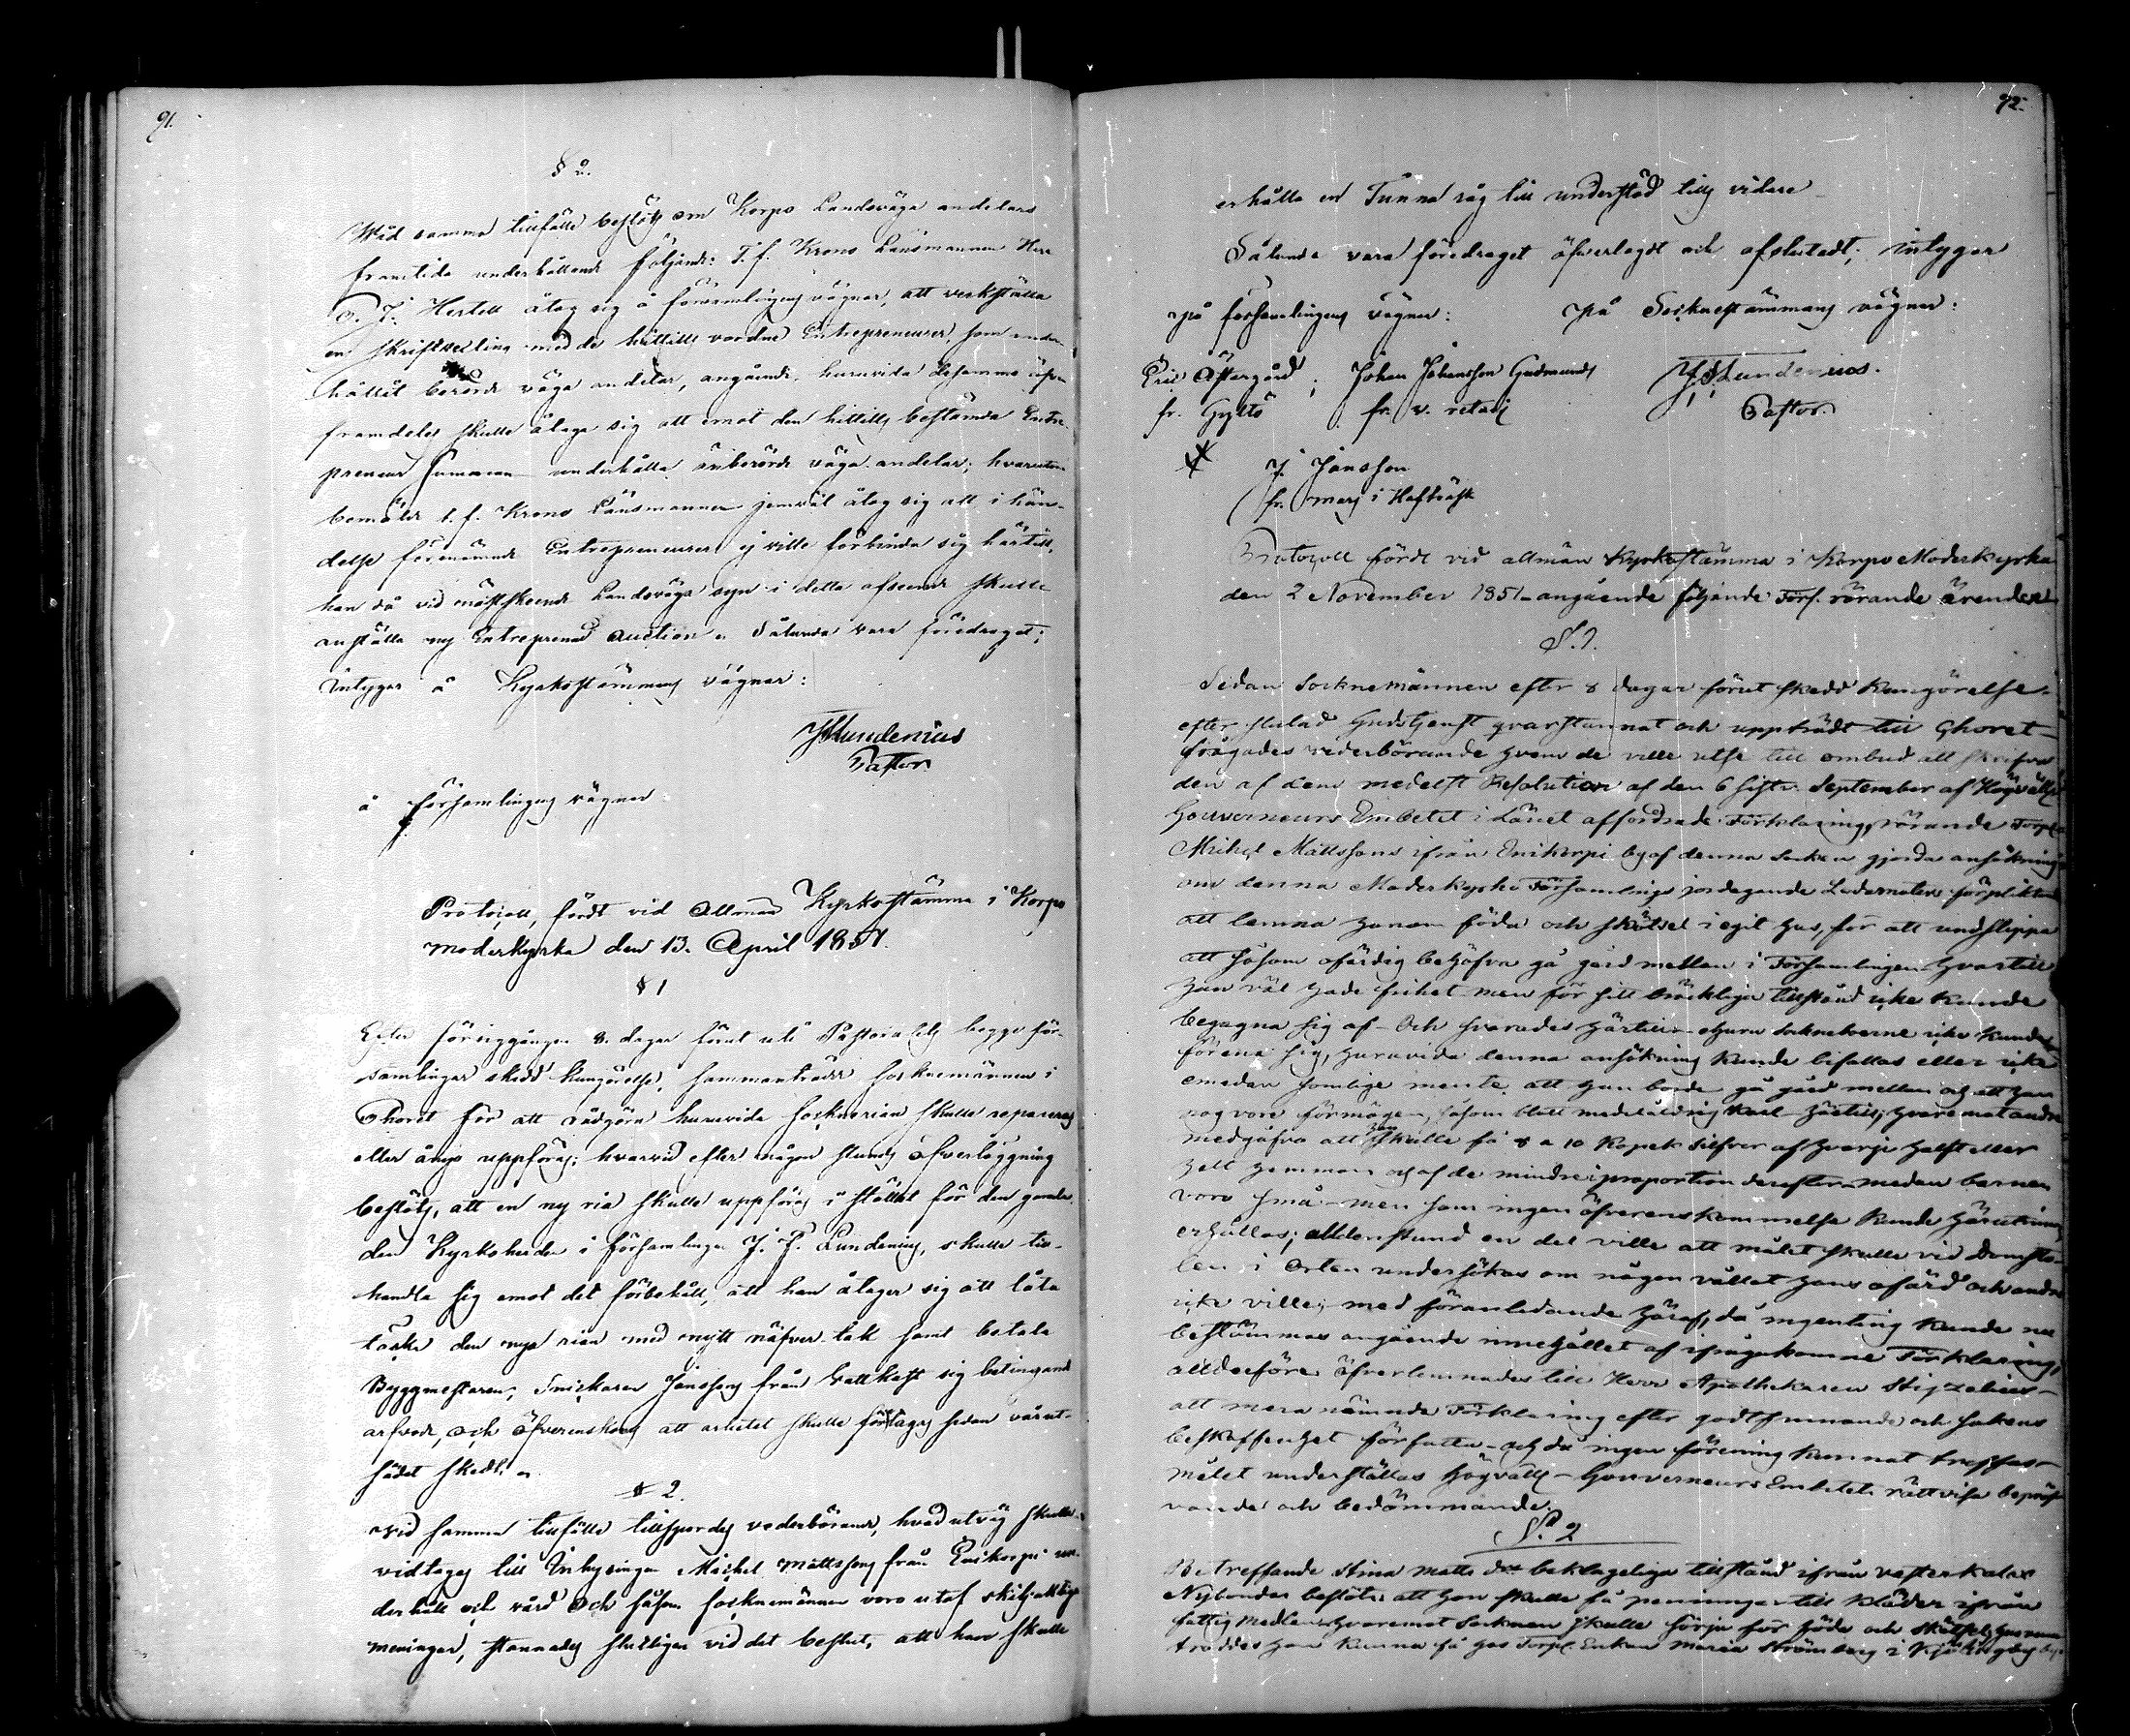 91.
§ 2.
Wid samma tillfälle beslöts om Korpo Landsväga andelars
framtida underhållande följande: T. f. Krono Länsmannen Herr
Hertell åtog sig å församlingens vägnar, att verkställa
en skriftvexling med de hittills vordne Entrepreneurer, som under-
hållit berörde väga andelar, angående, huruvida desamma äfven
framdeles skulle åtaga sig att emot den hittills bestämda Entre-
preneur summan underhålla änberörde väga andelar; hvarutom
bemälde t. f. Krono Länsmannen jemväl åtog sig att, i hän-
delse förenämnde Entrepreneurer ej ville förbinda sig härtill,
han då vid nästskeende Landsväga syn i detta afseende skulle
anställa ny Entreprenad auction. Sålunda vara föredraget;
intygar å Kyrkostämmans vägnar:
Lundenius
Pastor.
å församlingens vägnar
Protocoll, fördt vid Allmän Kyrkostämma i Korpo
moderkyrka den 13. April 1851.
§ 1
Efter föregången 8. dagar förut uti Pastoratets begge för-
samlingar skedd kungörelse, sammanträdde socknemännen i
Choret för att rådgöra huruvida socknerian skulle repareras
eller ånyo uppföras; hvarvid efter någon stunds öfverläggning
beslöts, att en ny ria skulle uppföras i stället för den gamla
den Kyrkoherden i församlingen J. P. Lundenius, skulle till-
handla sig emot det förbehåll, att han åtager sig att låta
täcka den nya rian med nytt näfver tak samt betala
Byggmestaren, Snickaren Jansson från Wattkast sig betingande
arfvode, och öfverenskoms att arbetet skulle företagas sedan vårut-
sädet skedt.
§ 2.
Vid samma tillfälle tillspordes vederbörande, hvad utväg skulle
vidtagas till Inhysingen Michel Mattssons från Enikorpi un-
derhåll och vård Och såsom socknemännen voro utaf skiljaktige
meningar, stannades slutligen vid det beslut, att han skulle
92.
erhålla en Tunna råg till understöd tills vidare
Sålunda vara föredraget öfverlagdt och afslutadt; intygar
på församlingens vägnar: på Sockneståmmans vägnar:
Eric Östergård; Johan Johansson Gudmunds Lundenius.
fr. Gyltö fr. v. retais Pastor.
J. Jansson
fr. mars i Hafträsk
Protocoll fördt vid allmän Kyrkostämma i Korpo Moderkyrka
den 2 November 1851 angående följande Förs. rörande ärender
§. 1.
Sedan Socknemännen efter 8 dagar förut skedd kungörelse
efter slutad Gudstjenst qvarstannat och uppträdt till Choret
frågades vederbörande hvem de ville utse till ombud att skrifva
den af dem medelst Resolution af den 6 sistl. September af Högvälb.
Gouverneurs Embetet i Länet affordrade Förklaring, rörande Torp.
Michel Mattssons ifrån Enikorpi by af denna Socken gjorda ansökning
om denna Moderkyrko Församlings jordegande Ledamöters förpliktande
att lemna honom föda och skötsel i egit hus, för att undslippa
att såsom ofärdig behöfva gå gård mellan i Församlingen hvartill
han väl hade frihet men för sitt bräckliga tillstånd icke kunde
begagna sig af. Och svarades härtill huru Sockneboerne icke kunde
förena sig, huruvida denna ansökning kunde bifallas eller icke
emedan somlige mente att han borde gå gård mellan och att han
nog vore förmögen, såsom blott medelåldrig karl härtill; hvaremot andre
medgåfvo att han skulle få 8 a 10 Kopek Silfver af hvarje halft eller
helt hemman och af de mindre i proportion derefter medan barnen
voro små men som ingen öfverenskommelse kunde härutinnan
erhållas; alldenstund en del ville att målet skulle vid domsto-
len i Orten undersökas om någon vållat hans ofärd och andre
icke ville; med föranledande häraf, då ingenting kunde nu
bestämmas angående innehållet af ifrågakomne Förklaring,
alldeeföre öfverlemnades till Herr Apothekaren Stigzelius
att mera nämnde Förklaring efter godtfinnande och sakens
beskaffenhet författa och då ingen förening kunnat träffas
målet underställas Högvälb. Gouverneurs Embetets rättvisa bepröf-
vande och bedömmande.
§. 2
Beträffande Stina Matts der beklageliga tillstånd ifrån Wästerkalax
Nybondas beslöts att hon skulle få penningar till kläder ifrån
fattig medlen hvaremot Socknen skulle sörja för föda och skötsel, hvarom
troddes hon kunna få hos Torp. Enkan Maria Strömberg i